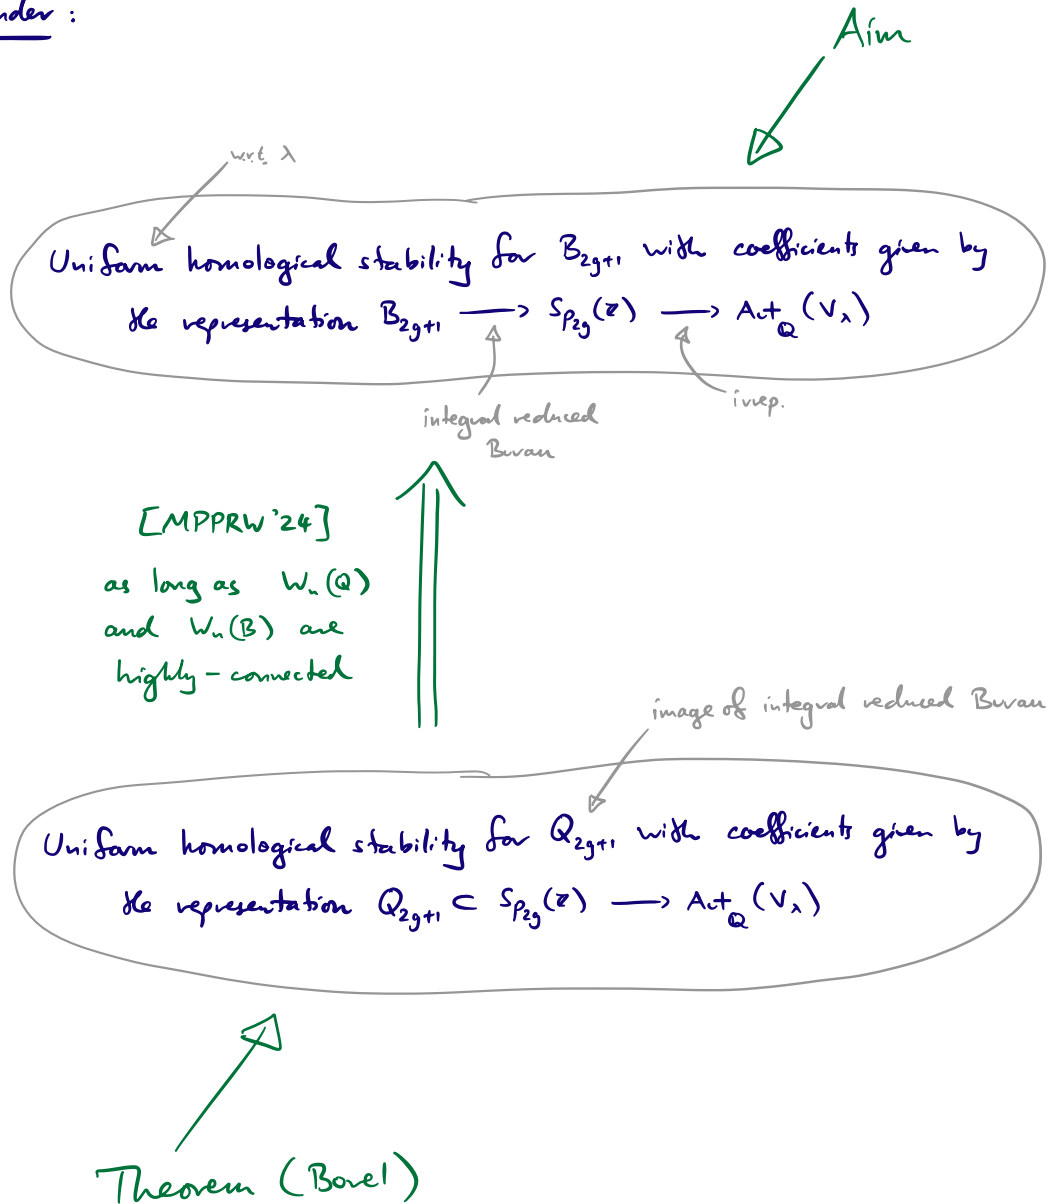 nder :
Aim
w.r.t. λ
Uniform homological stability for B_{2g+1} with coefficients given by
the representation B_{2g+1} → Sp_{2g}(Z) → Aut_Q(V_λ)
integral reduced
Burau
irrep.
[MPPRW '24]
as long as W_n(Q)
and W_n(B) are
highly-connected
image of integral reduced Burau
Uniform homological stability for Q_{2g+1} with coefficients given by
the representation Q_{2g+1} ⊂ Sp_{2g}(Z) → Aut_Q(V_λ)
Theorem (Borel)